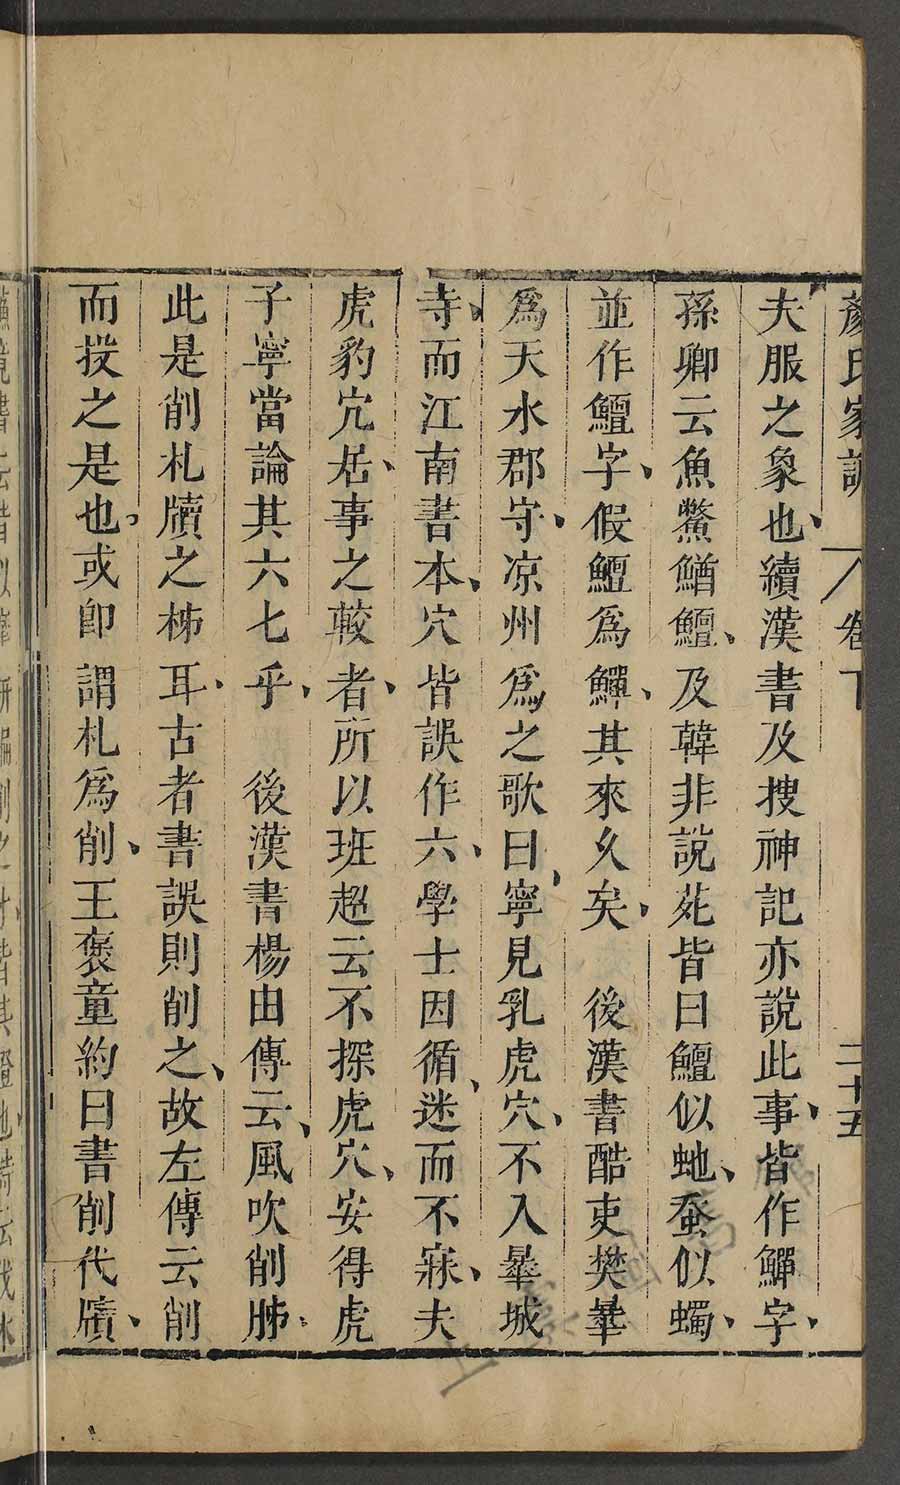 顏氏家訓 卷下 二十五
夫服之象也續漢書及搜神記亦說此事皆作鱓字
孫卿云魚鱉鰌鱣及韓非說苑皆曰鱣似虵蚕似蠋
並作鱣字假鱣爲鱓其來久矣 後漢書酷吏樊曅
爲天水郡守凉州爲之歌曰寧見乳虎穴不入曅城
寺而江南書本穴皆誤作六學士因循迷而不寐夫
虎豹穴居事之較者所以班超云不探虎穴安得虎
子寧當論其六七乎 後漢書楊由傳云風吹削胏
此是削札牘之柹耳古者書誤則削之故左傳云削
而投之是也或卽謂札爲削王褒童約曰書削代牘